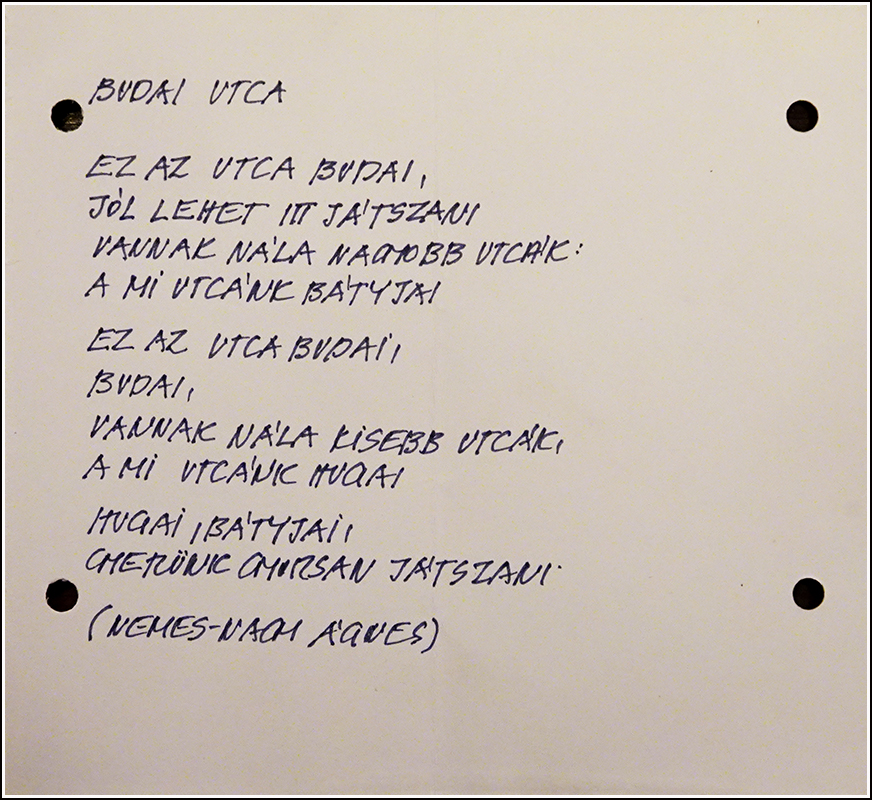 BUDAI UTCA
EZ AZ UTCA BUDAI,
JÓL LEHET ITT JÁTSZANI
VANNAK NÁLA NAGYOBB UTCÁK:
A MI UTCÁNK BÁTYJAI
EZ AZ UTCA BUDAI,
BUDAI,
VANNAK NÁLA KISEBB UTCÁK,
A MI UTCÁNK HUGAI
HUGAI, BÁTYJAI,
GYERÜNK GYORSAN JÁTSZANI.
(NEMES-NAGY ÁGNES)